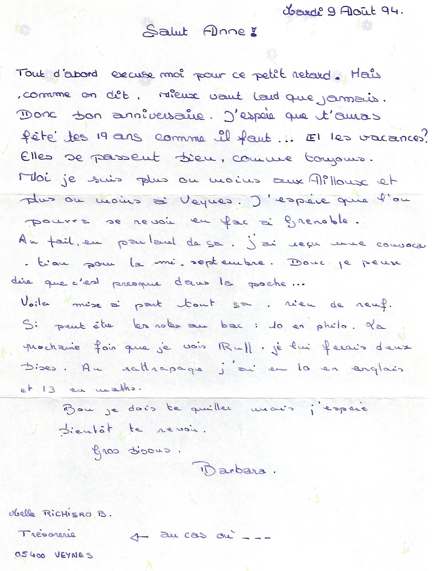 Mardi 9 Août 94.
Salut Anne!
Tout d'abord excuse moi pour ce petit retard. Mais
, comme on dit, mieux vaut tard que jamais.
Donc bon anniversaire. J'espère que t'auras
fêté tes 19 ans comme il faut... Et les vacances?
Elles se passent bien, comme toujours.
Moi je suis plus ou moins aux et
plus ou moins à Veynes. J'espère que l'on
pourra se revoir en fac à Grenoble.
Au fait, en parlant de sa, j'ai reçu une convoca
- tion pour la mi-septembre. Donc je peux
dire que c'est presque dans la poche...
Voila mise à part tout sa, rien de neuf.
Si peut être les notes au bac : 10 en philo. La
prochaine fois que je vois Rull, je lui ferais deux
bises. Au rattrapage j'ai eu 10 en anglais
et 13 en maths.
Bon je dois te quitter mais j'espère
bientôt te revoir.
Gros bisous.
Barbara.
Melle B.
Trésorerie ← au cas où ---
05400 VEYNES